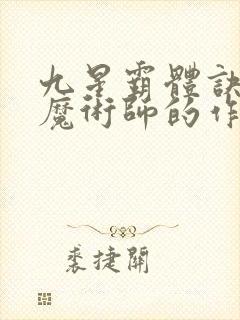 九星霸體訣
魔術師的作
裘捷開